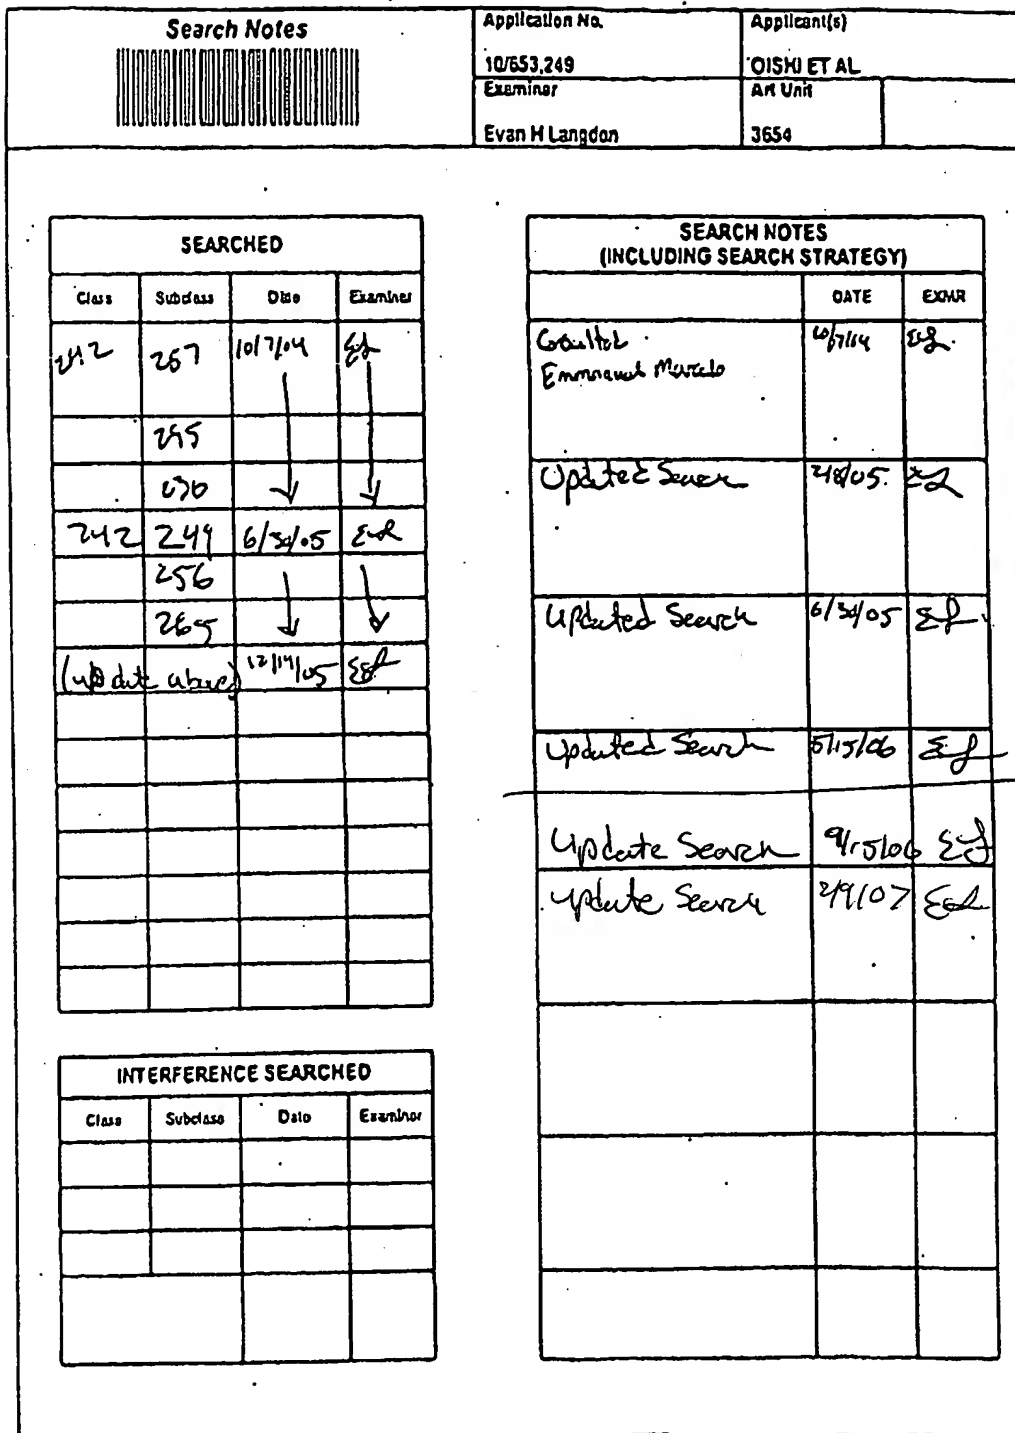 Search Notes
Application No.
Applicant(s)
10/653,249
OISHI ET AL
Examiner
Art Unit
Evan H Langdon
3654
SEARCHED
Class Subclass Date Examiner
242 257 10/7/04 EL
295
242 249 6/30/05 EL
256
265
(update above) 12/14/05 EL
INTERFERENCE SEARCHED
Class Subclass Date Examiner
SEARCH NOTES
(INCLUDING SEARCH STRATEGY)
DATE EXMR
Emmanuel Marcelo
Updated Search EL
Updated Search 6/30/05 EL
Updated Search 5/15/06 EL
Update Search 9/15/06 EL
update Search 2/9/07 EL